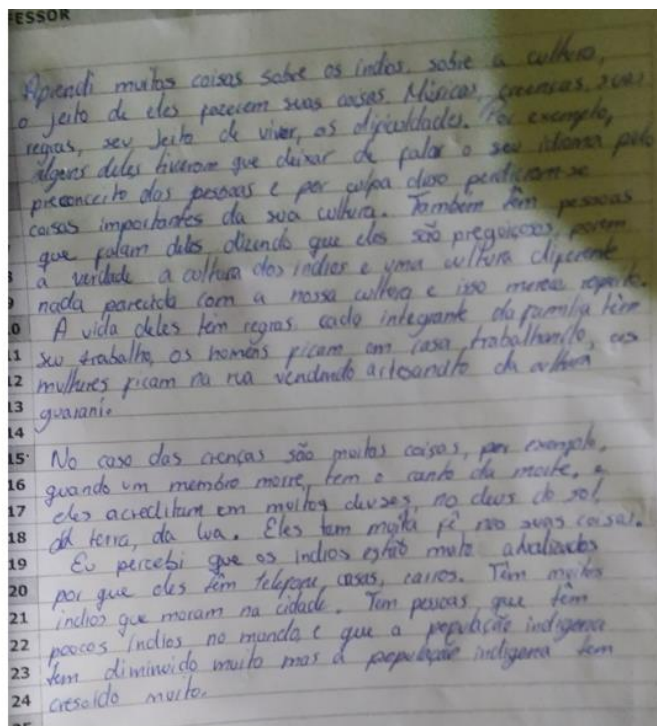 ESSOR
Aprendi muitas coisas sobre os indios, sobre a cultura,
o jeito de eles fazerem suas coisas. Músicas, creencas, suas
regras, seu jeito de viver, as dificuldades. Por exemplo,
algens deles tiveram que deixar de falar o seu idioma pelo
preconceito das pessoas e por culpa disso perdieram-se
coisas importantes da sua cultura. Tambem têm pessoas
que falam deles dizendo que eles são preguiçosos, porem
8 a verdade a cultura dos indios e uma cultura diferente
9 nada parecida com a nossa cultura e isso merece respeito.
10 A vida deles tem regras, cada integrante da família têm
11 seu trabalho, os homens ficam em casa trabalhando, as
12 mulheres ficam na rua vendendo artesanato da cultura
13 guarani.
14
15 No caso das crenças são muitas coisas, por exemplo,
16 quando um membro morre, tem o canto da morte, e
17 eles acreditam em muitos deuses, no deus do sol,
18 da terra, da lua. Eles tem muita fé nas suas coisas.
19 Eu percebi que os indios estão muto atualizados
20 por que eles têm telefone, casas, carros. Têm muitos
21 indios que moram na cidade. Tem pessoas que tem
22 poucos índios no mundo, e que a população indigena
23 tem diminuido muito mas a população indigena tem
24 crescido muito.